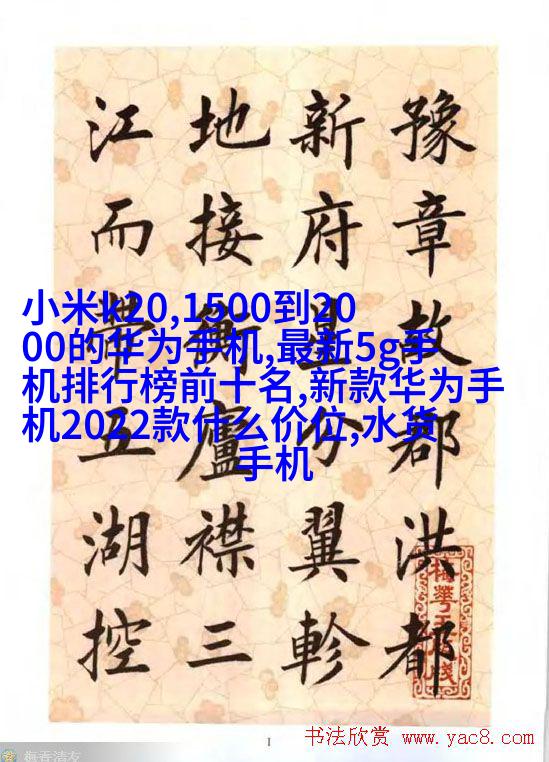 豫章故郡洪都
新府星分翼軫
地接衡廬襟三
江而帶五湖控
小米k20,1500到20
00的华为手机,最新5g手
机排行榜前十名,新款华为手
机2022款什么价位,水货
手机
1
书法欣赏 www.yac8.com